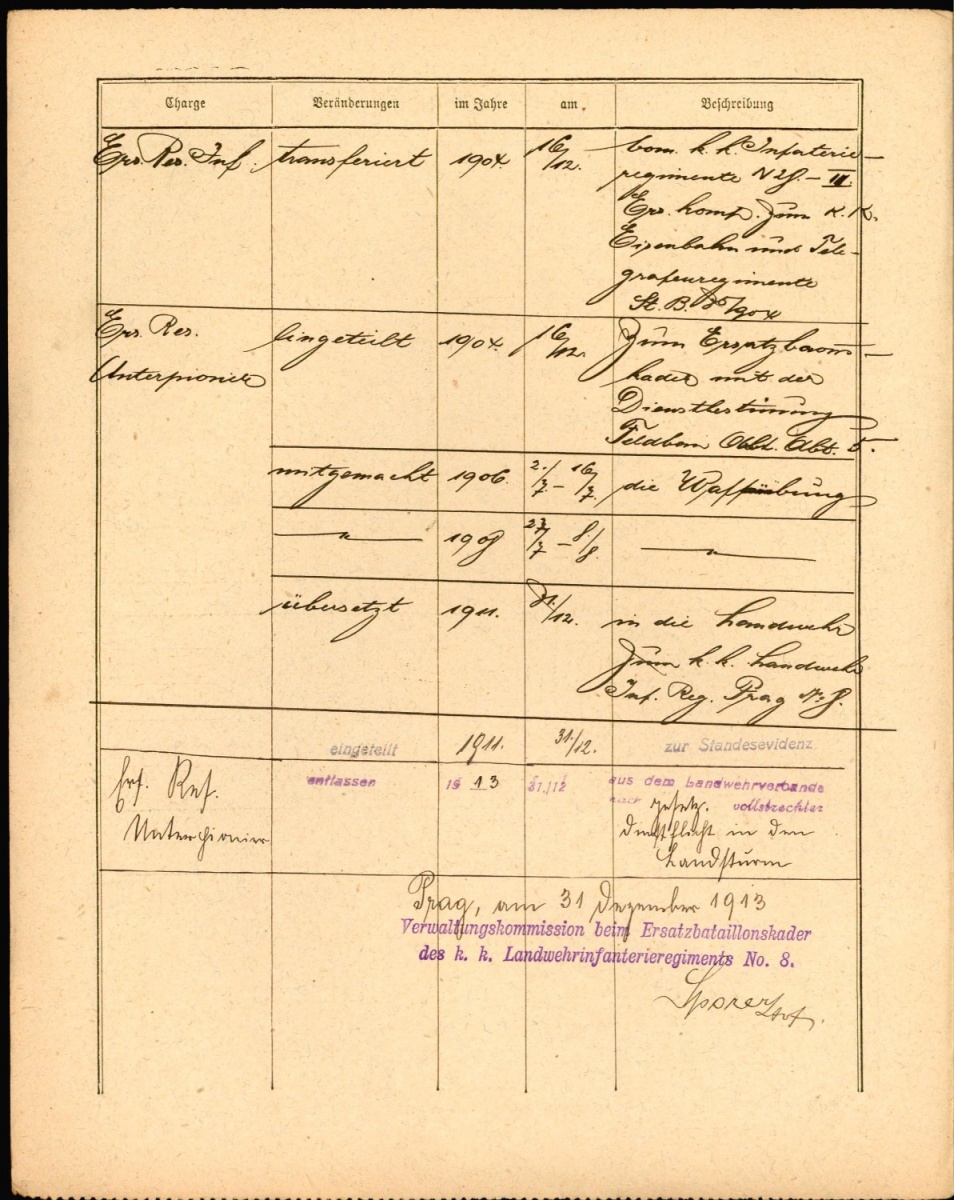 Charge Veränderungen im Jahre am Beschreibung
Ers. Res. Inf. transferiert 1904. 16/12. vom k. k. Infaterie-
regimente N 28. – III.
Ers. komp. zum k. k.
Eisenbahn und Tele-
grafenregimente
St. B. /904
Ers. Res. eingeteilt 1904. 16/12. Zum Ersatzbaons-
Unterpionier kader mit der
Dienstbestimung
Feldban Abt. 5.
mitgemacht 1906. 2./7. – 16/7. die Waffenübung
—"— 1908 23/7 – 8/8. —"—
übersetzt 1911. 31./12. in die Landwehr
Zum k. k. Landwehr
Inf. Reg. Prag No 8.
eingeteilt 1911. 31./12. zur Standesevidenz
Ers. Res. entlassen 1913 31./12 aus dem Landwehrverbande
Unterpionier nach gesetz. vollstreckter
Dinstpflicht in den
Landsturm
Prag, am 31 Dezember 1913
Verwaltungskommission beim Ersatzbataillonskader
des k. k. Landwehrinfanterieregiments No. 8.